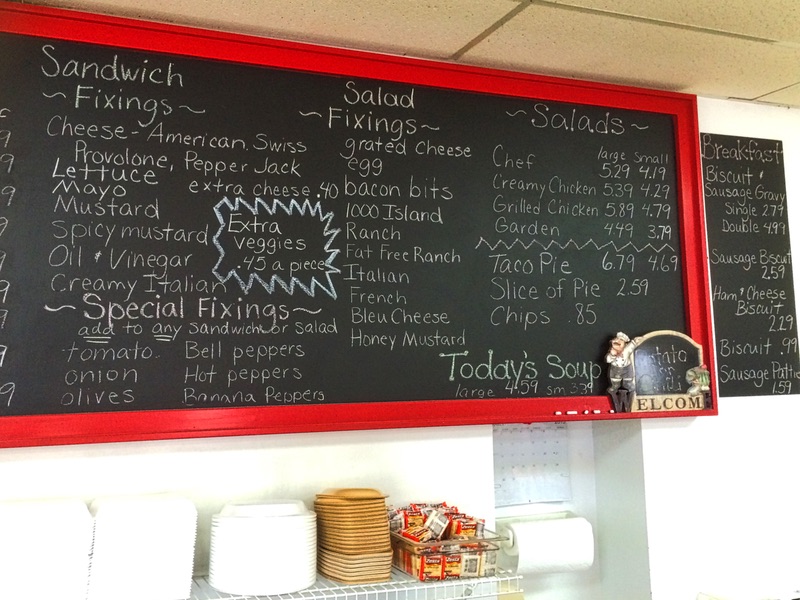 Sandwich
~Fixings~
Cheese-American. Swiss
Provolone, Pepper Jack
Lettuce
extra cheese .40
Mayo
Mustard
Spicy mustard
Oil & Vinegar
Creamy Italian
Extra
veggies
.45 a piece
~Special Fixings~
add to any sandwich or salad
tomato
onion
olives
Bell peppers
Hot peppers
Banana Peppers
Salad
~Fixings~
grated cheese
egg
bacon bits
1000 Island
Ranch
Fat Free Ranch
Italian
French
Bleu Cheese
Honey Mustard
~Salads~
large small
Chef 5.29 4.19
Creamy Chicken 5.39 4.29
Grilled Chicken 5.89 4.79
Garden 4.49 3.79
Taco Pie 6.79 4.69
Slice of Pie 2.59
Chips .85
Today's Soup
large 4.59 sm 3.39
WELCOME
Breakfast
Biscuit &
Sausage Gravy
Single 2.79
Double 4.99
Sausage Biscuit
2.59
Ham & Cheese
Biscuit
2.29
Biscuit .99
Sausage Pattie
1.59